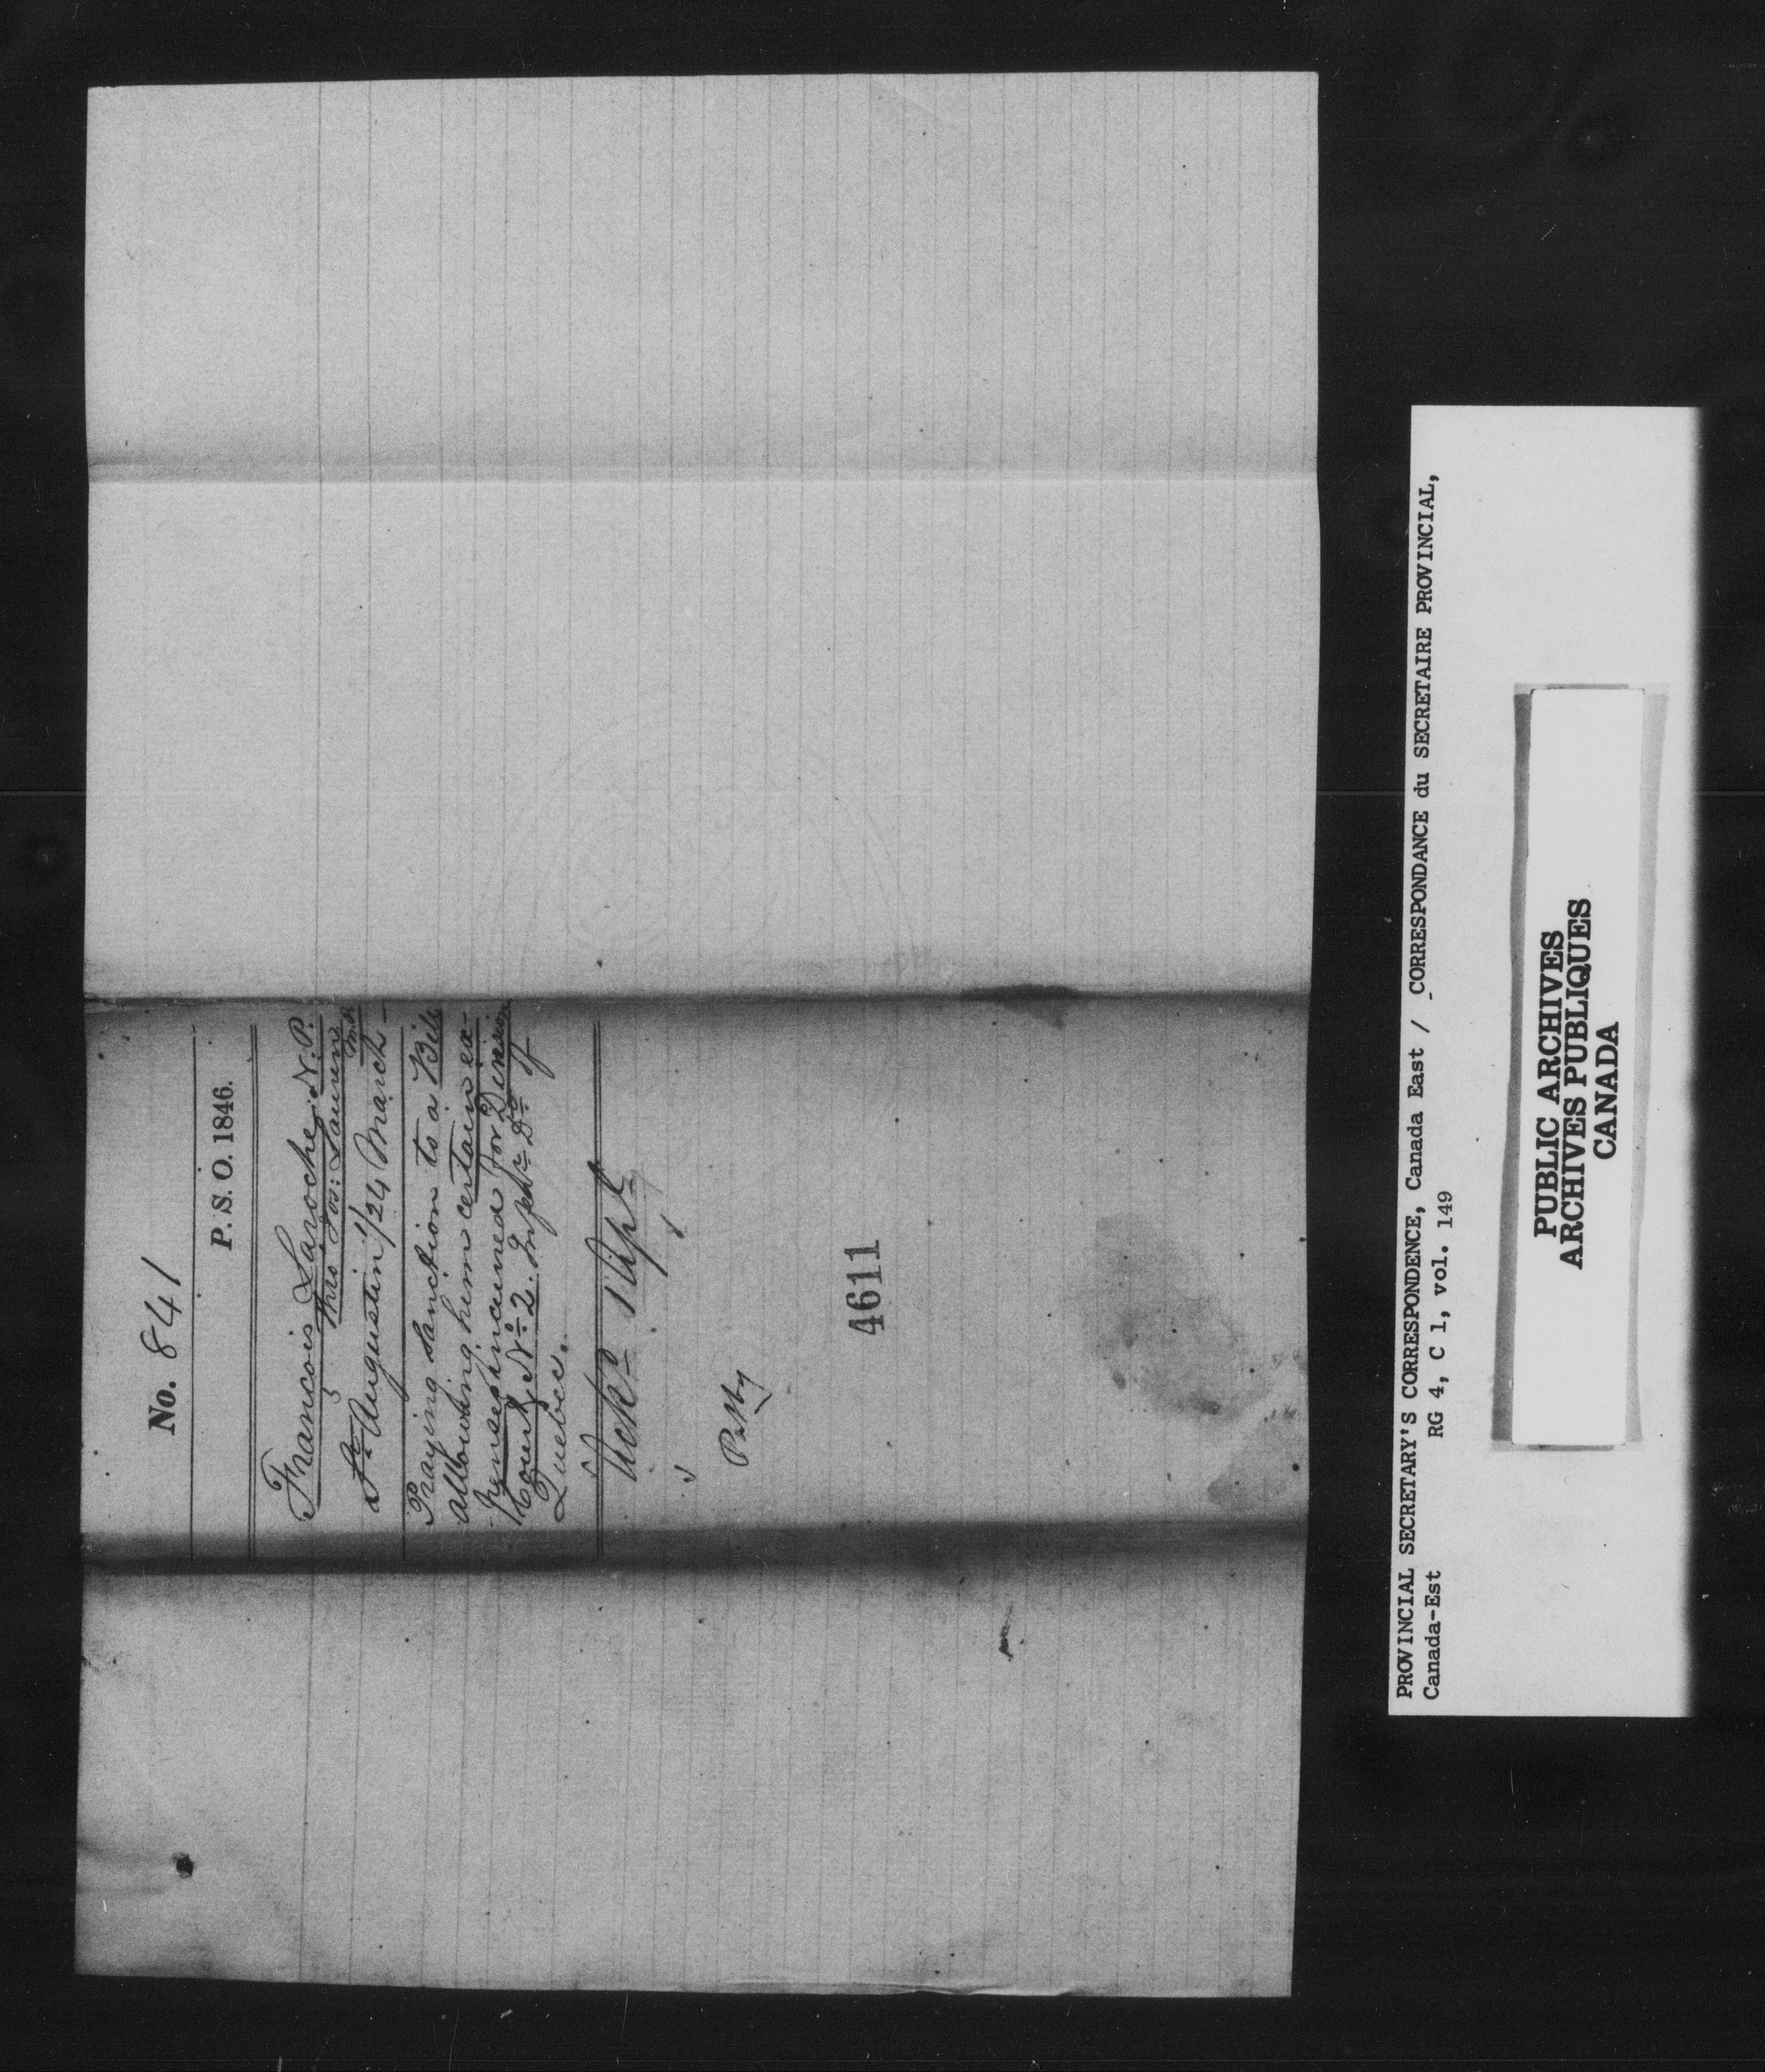 No. 841
P. S. O. 1846.
Francois Laroche, N.P.
thro' Jos: Laurin
M.P.
St. Augustin 1/24 March
Praying Sanction to a Bill
allowing him certain ex-
penses incurred for Division
Court, No 2. Infr. Dn. of
Quebec.
Ackd 1 Apl
4611
PROVINCIAL SECRETARY'S CORRESPONDENCE, Canada East / CORRESPONDANCE du SECRETAIRE PROVINCIAL,
Canada-Est RG 4, C 1, vol. 149
PUBLIC ARCHIVES
ARCHIVES PUBLIQUES
CANADA